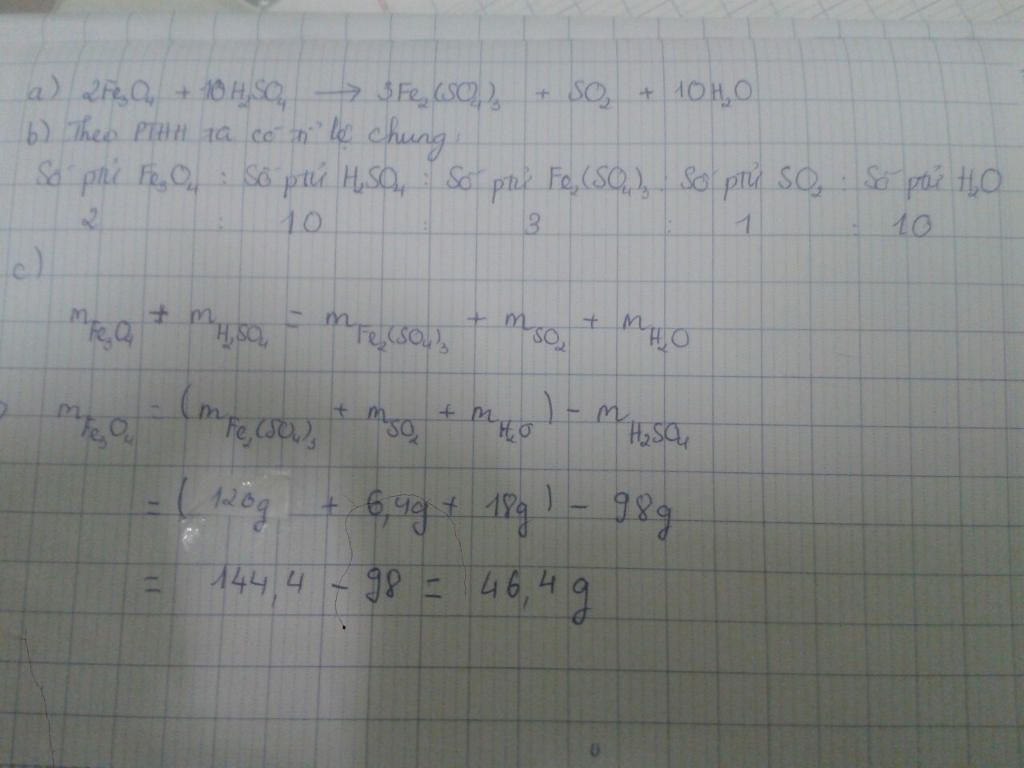 a) 2Fe₃O₄ + 10H₂SO₄ → 3Fe₂(SO₄)₃ + SO₂ + 10H₂O
b) Theo PTHH ta có tỉ lệ chung:
Số ptử Fe₃O₄ : Số ptử H₂SO₄ : Số ptử Fe₂(SO₄)₃ : Số ptử SO₂ : Số ptử H₂O
2 : 10 : 3 : 1 : 10
c)
m Fe₃O₄ + m H₂SO₄ = m Fe₂(SO₄)₃ + m SO₂ + m H₂O
m Fe₃O₄ = (m Fe₂(SO₄)₃ + m SO₂ + m H₂O) - m H₂SO₄
= (120g + 6,4g + 18g) - 98g
= 144,4 - 98 = 46,4 g